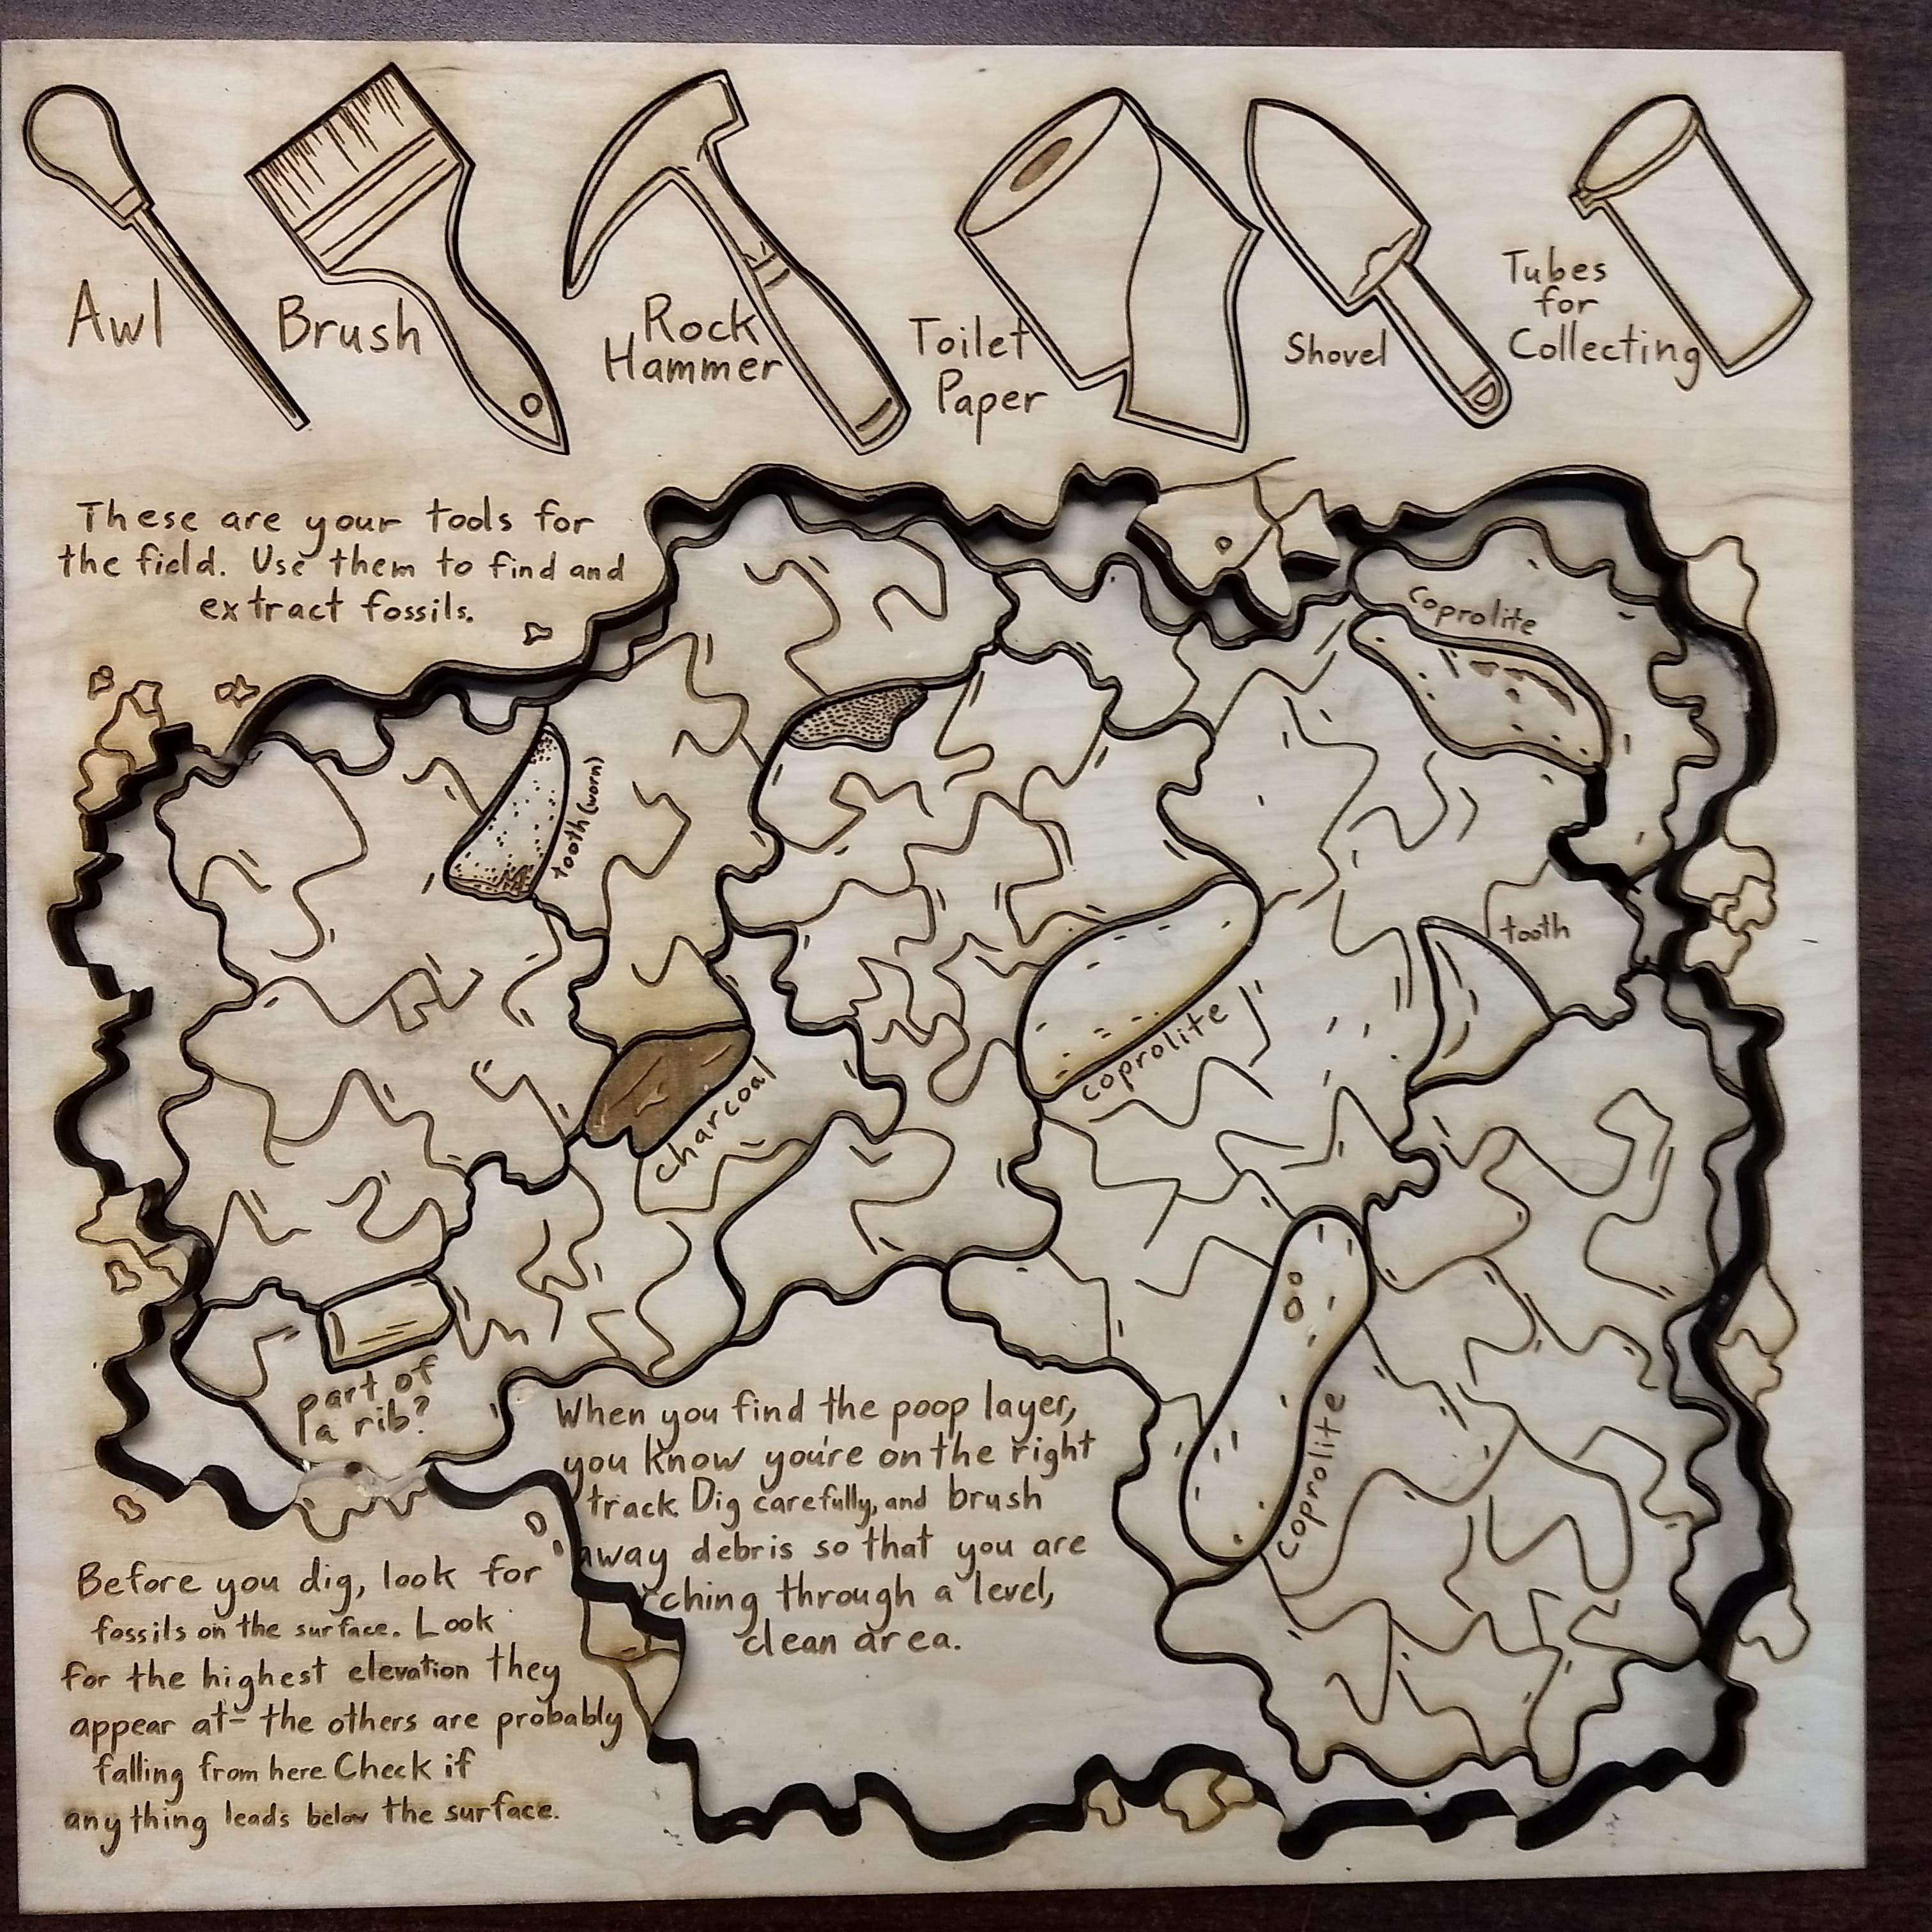 Awl
Brush
Rock
Hammer
Toilet
Paper
Shovel
Tubes
for
Collecting
These are your tools for
the field. Use them to find and
extract fossils.
coprolite
tooth (worn)
tooth
coprolite
charcoal
part of
a rib?
coprolite
When you find the poop layer,
you know you're on the right
track Dig carefully, and brush
away debris so that you are
through a level,
clean area.
Before you dig, look for
fossils on the surface. Look
for the highest elevation they
appear at- the others are probably
falling from here Check if
anything leads below the surface.